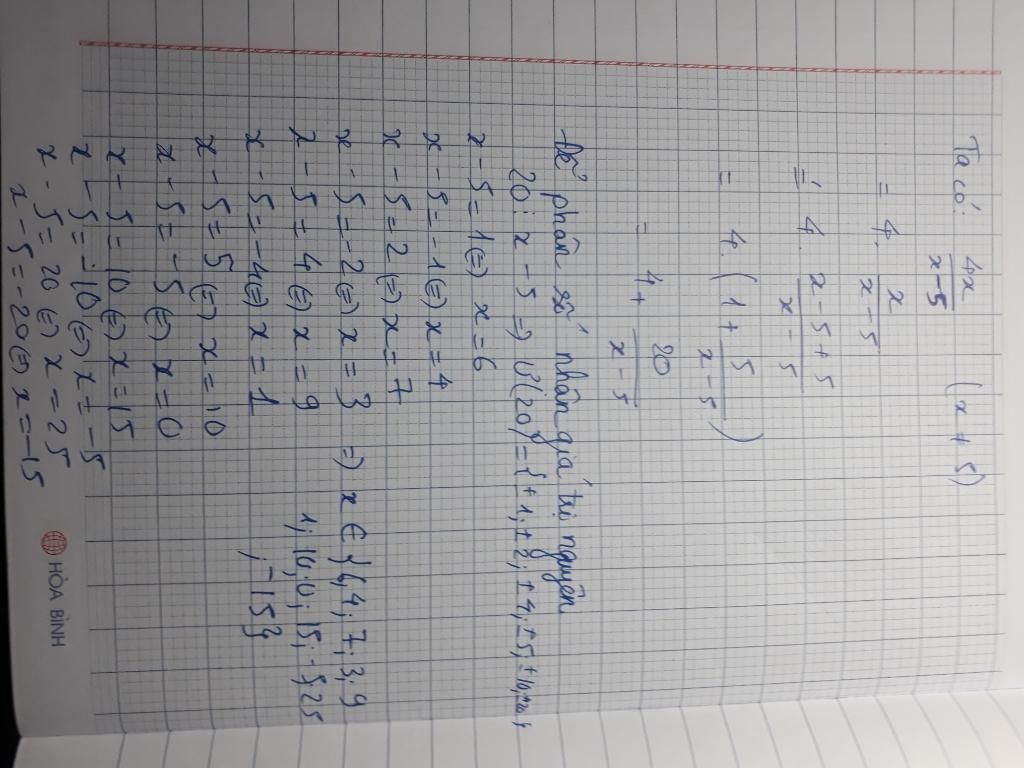 Ta có: 4x/x-5 (x ≠ 5)
= 4. x/x-5
= 4. x-5+5/x-5
= 4. (1 + 5/x-5)
= 4 + 20/x-5
Để phân số nhân giá trị nguyên
20 ⋮ x-5 => Ư(20) = {±1; ±2; ±4; ±5; ±10; ±20}
x - 5 = 1 (=) x = 6
x - 5 = -1 (=) x = 4
x - 5 = 2 (=) x = 7
x - 5 = -2 (=) x = 3 => x ∈ {6, 4; 7, 3; 9
x - 5 = 4 (=) x = 9 1; 10; 0; 15; -5, 25
x - 5 = -4 (=) x = 1 ; -15}
x - 5 = 5 (=) x = 10
x - 5 = -5 (=) x = 0
x - 5 = 10 (=) x = 15
x - 5 = -10 (=) x = -5
x - 5 = 20 (=) x = 25
x - 5 = -20 (=) x = -15
HÒA BÌNH